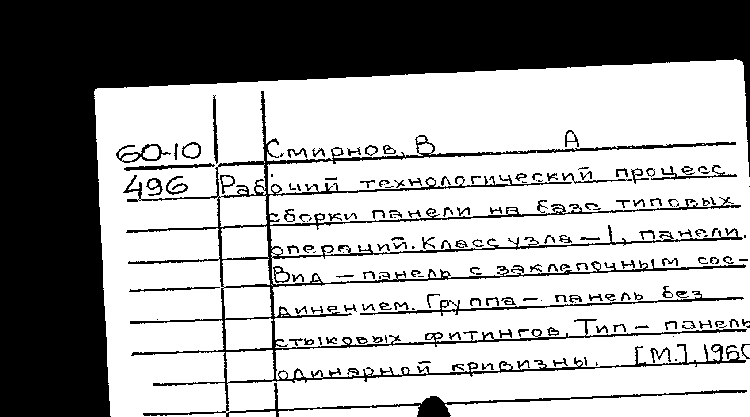 60-10 Смирнов, В А
496 Рабочий технологический процесс
сборки панели на базе типовых
операций. Класс узла – 1, панели.
Вид – панель с заклепочным сое-
динением. Группа – панель без
стыковых фитингов. Тип – панель
одинарной кривизны. [М.], 1960